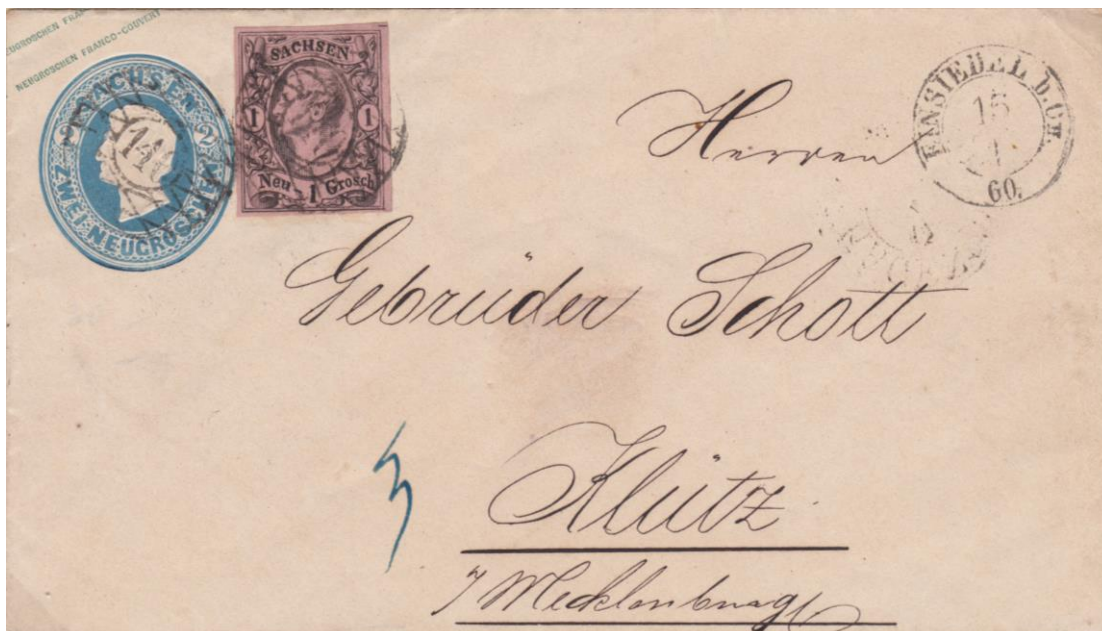 NEUGROSCHEN FRANCO-COUVERT
SACHSEN
2 2
ZWEI NEUGROSCHEN
14
SACHSEN
1 1
Neu 1 Grosch
EINSIEDEL b. CH.
15
1
60.
Herren
Gebrüder Schott
3
Klütz
i/ Mecklenburg